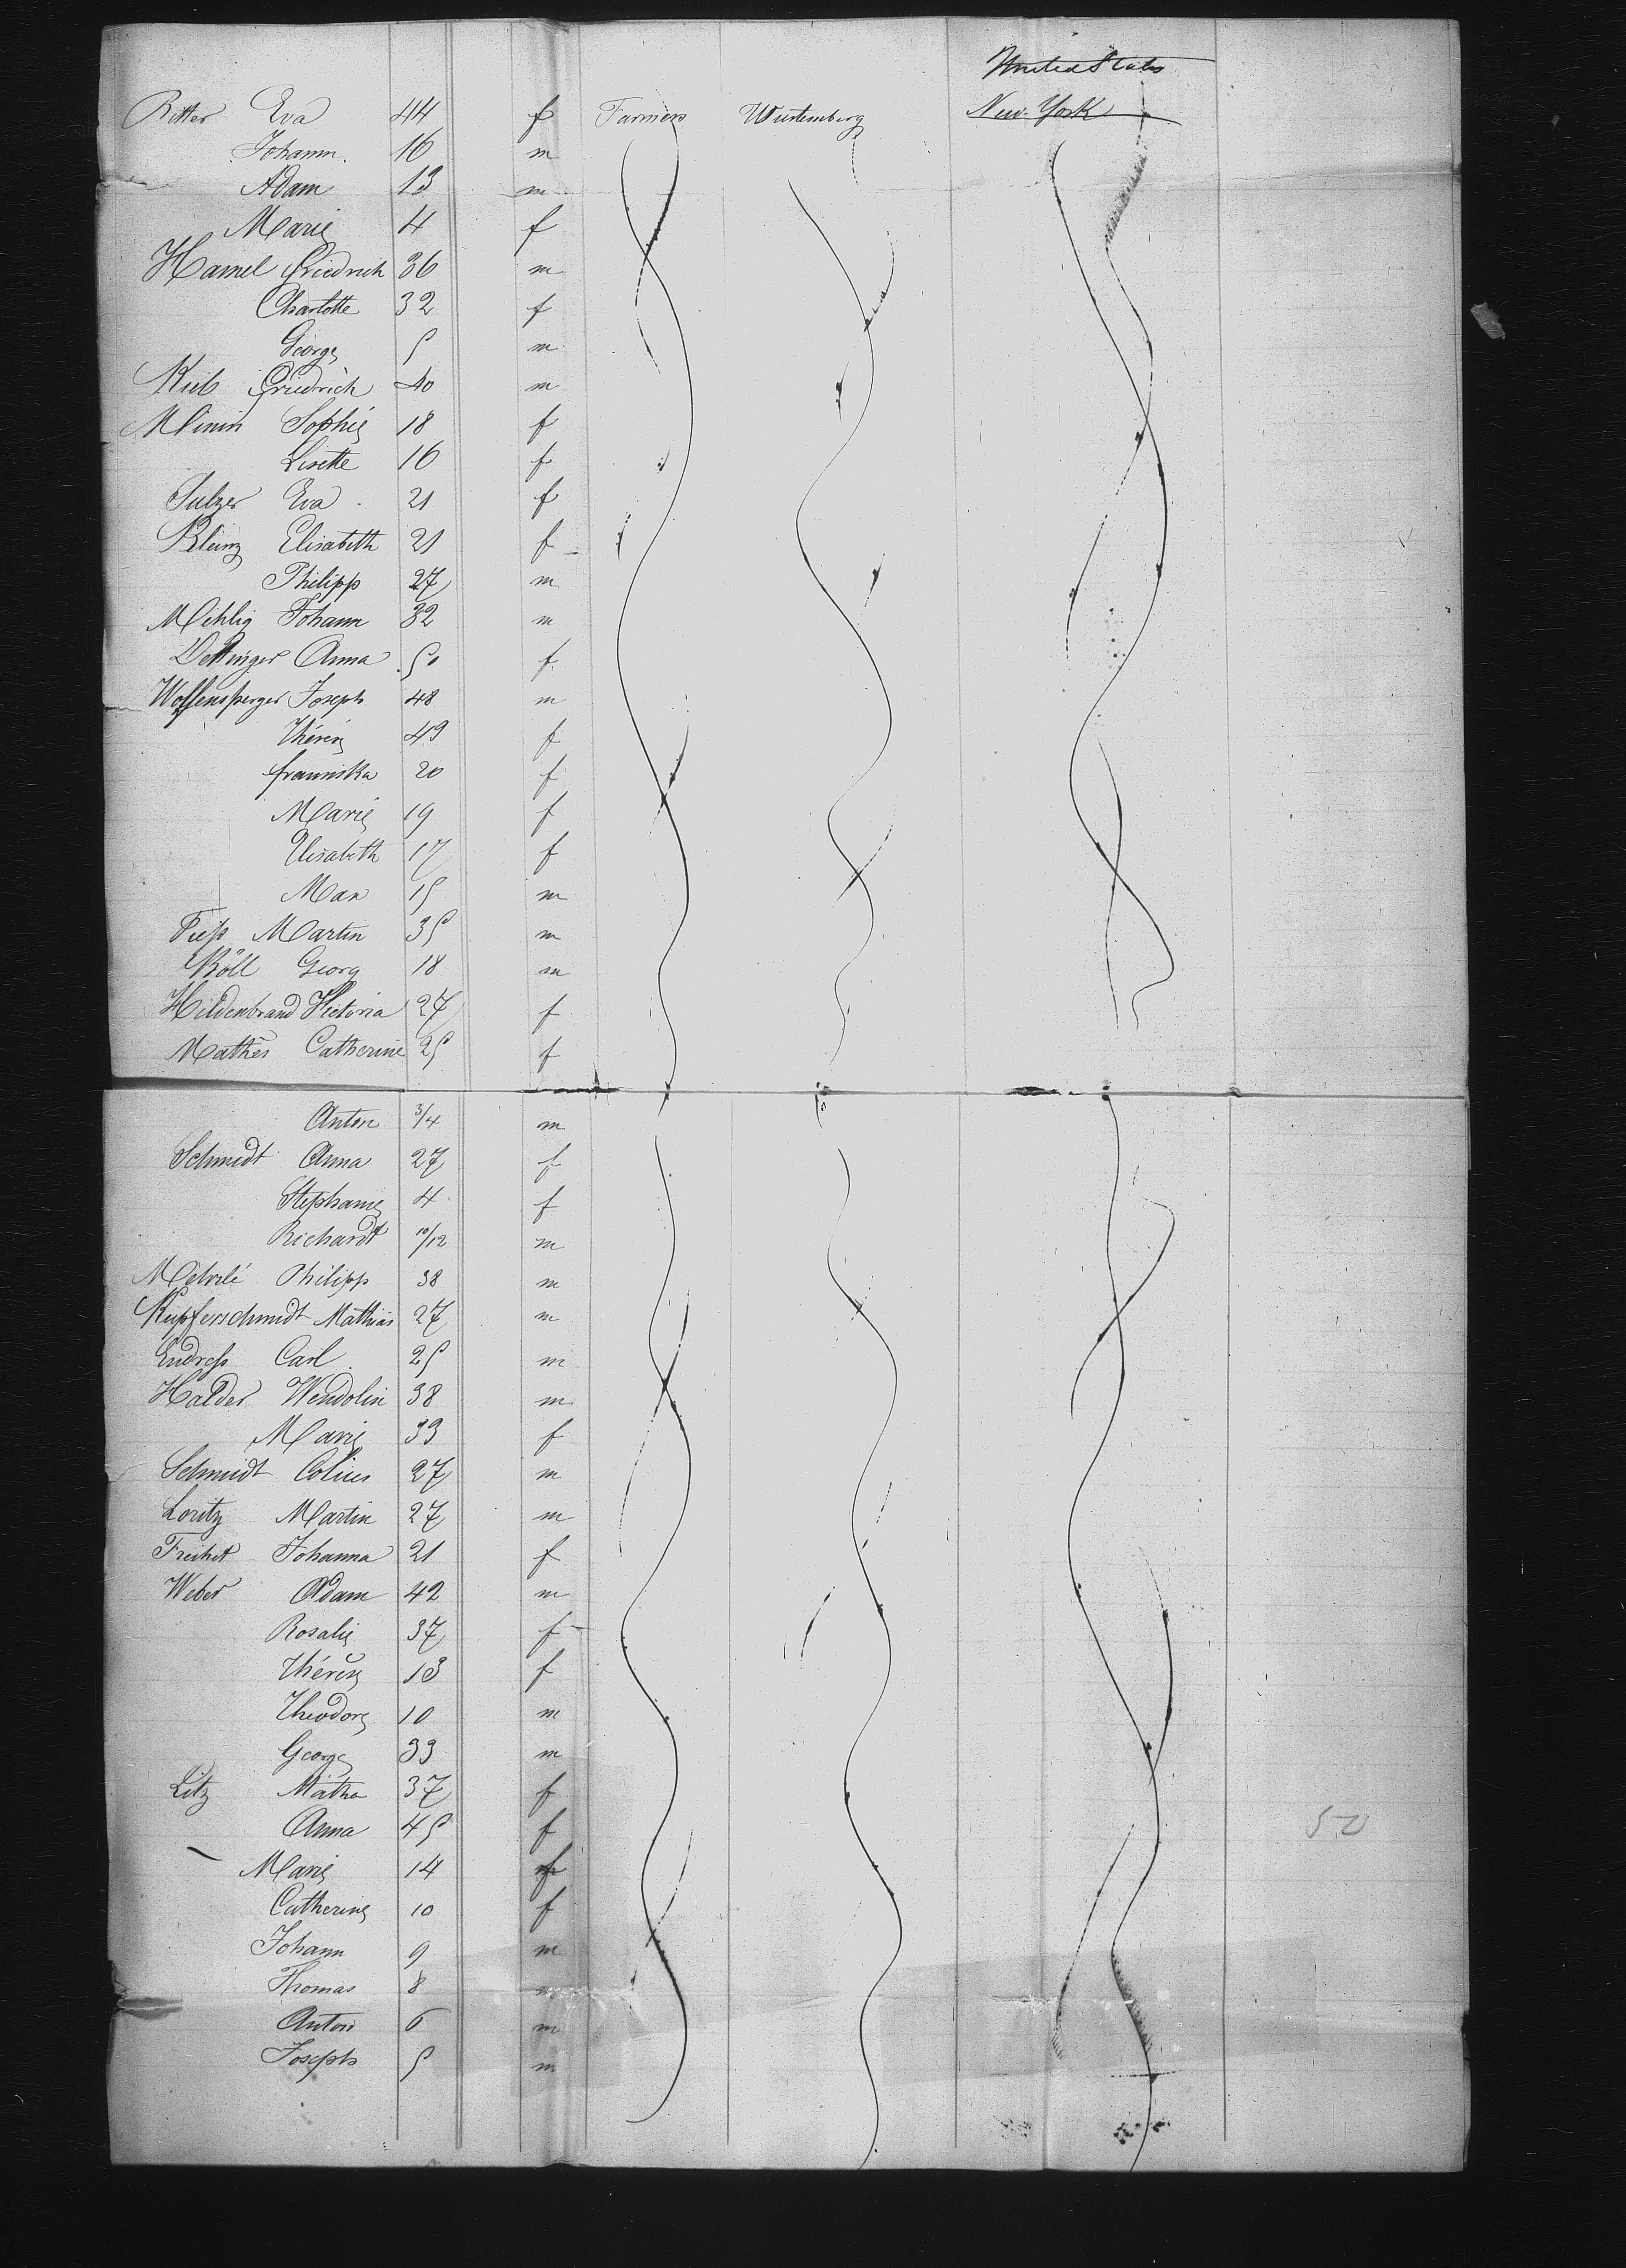 United States
Ritter Eva 44 f Farmers Wurtemberg New-York
Johann. 16 m
Adam 13 m
Marie 4 f
Hamel Friedrich 36 m
Charlotte 32 f
George 5 m
Kieb Friedrich 40 m
Sophie 18 f
Lisette 16 f
Sulzer Eva 21 f
Elisabeth 21 f
Philipp 27 m
Mehlig Johann 32 m
Dettinger Anna 50 f
Wolfensperger Joseph 48 m
Thérèse 49 f
franniska 20 f
Marie 19 f
Elisabeth 17 f
Max 15 m
Martin 35 m
Röll Georg 18 m
Hildenbrand Victoria 27 f
Mathes Catherine 25 f
Anton 3/4 m
Schmidt Anna 27 f
Stephanie 4 f
Richardt 10/12 m
Philipp 38 m
Kupferschmidt Mathias 27 m
Endress Carl 25 m
Halder Wendolin 38 m
Marie 33 f
Schmidt 27 m
Loritz Martin 27 m
Johanna 21 f
Weber Adam 42 m
Rosalie 37 f
Thérèse 13 f
Theodore 10 m
George 33 m
Litz 37 f
Anna 45 f
Marie 14 f
Catherine 10 f
Johann 9 m
Thomas 8 m
Anton 6 m
Joseph 5 m
50